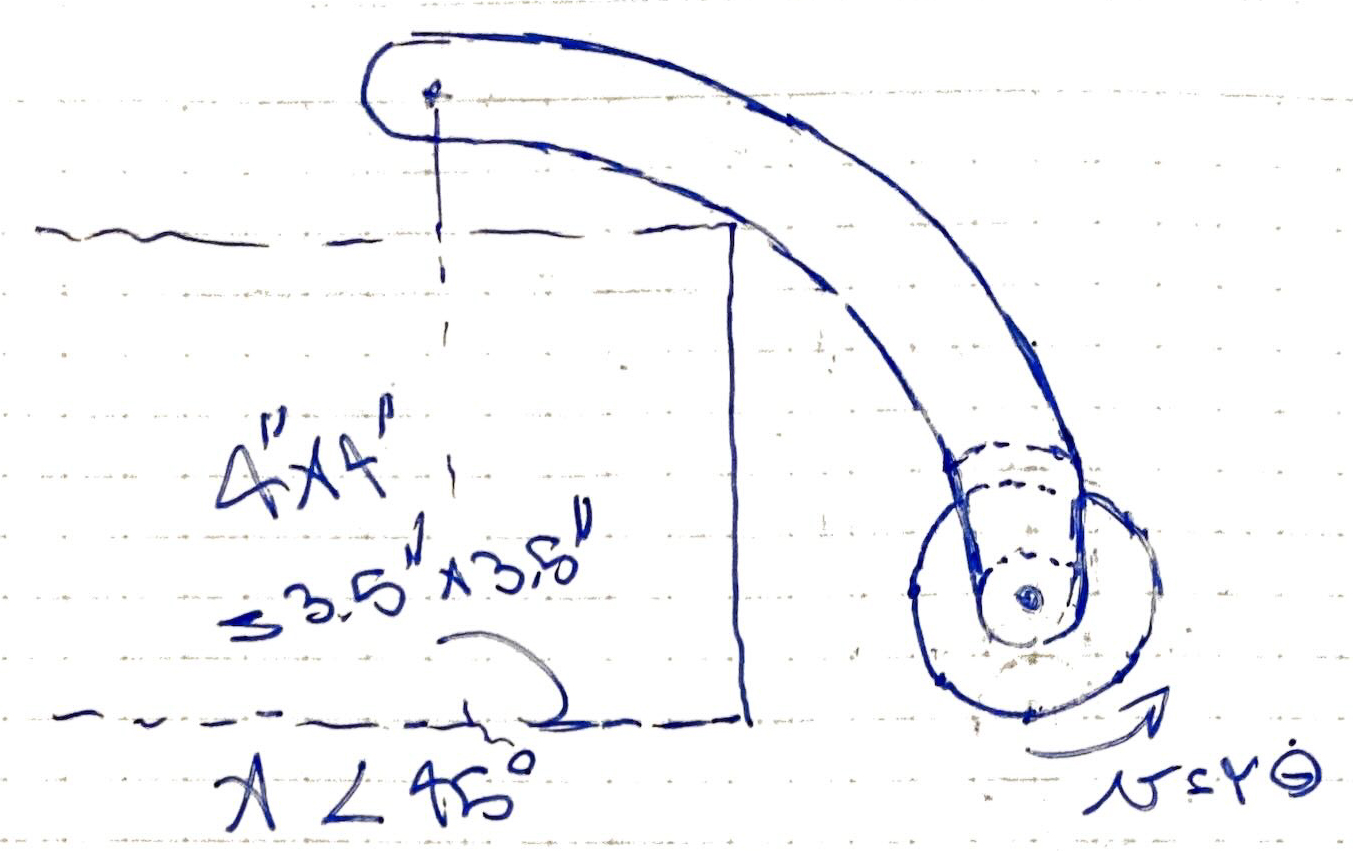 4"X4"
=3.5"X3.5"
A < 45°
v=rθ̇